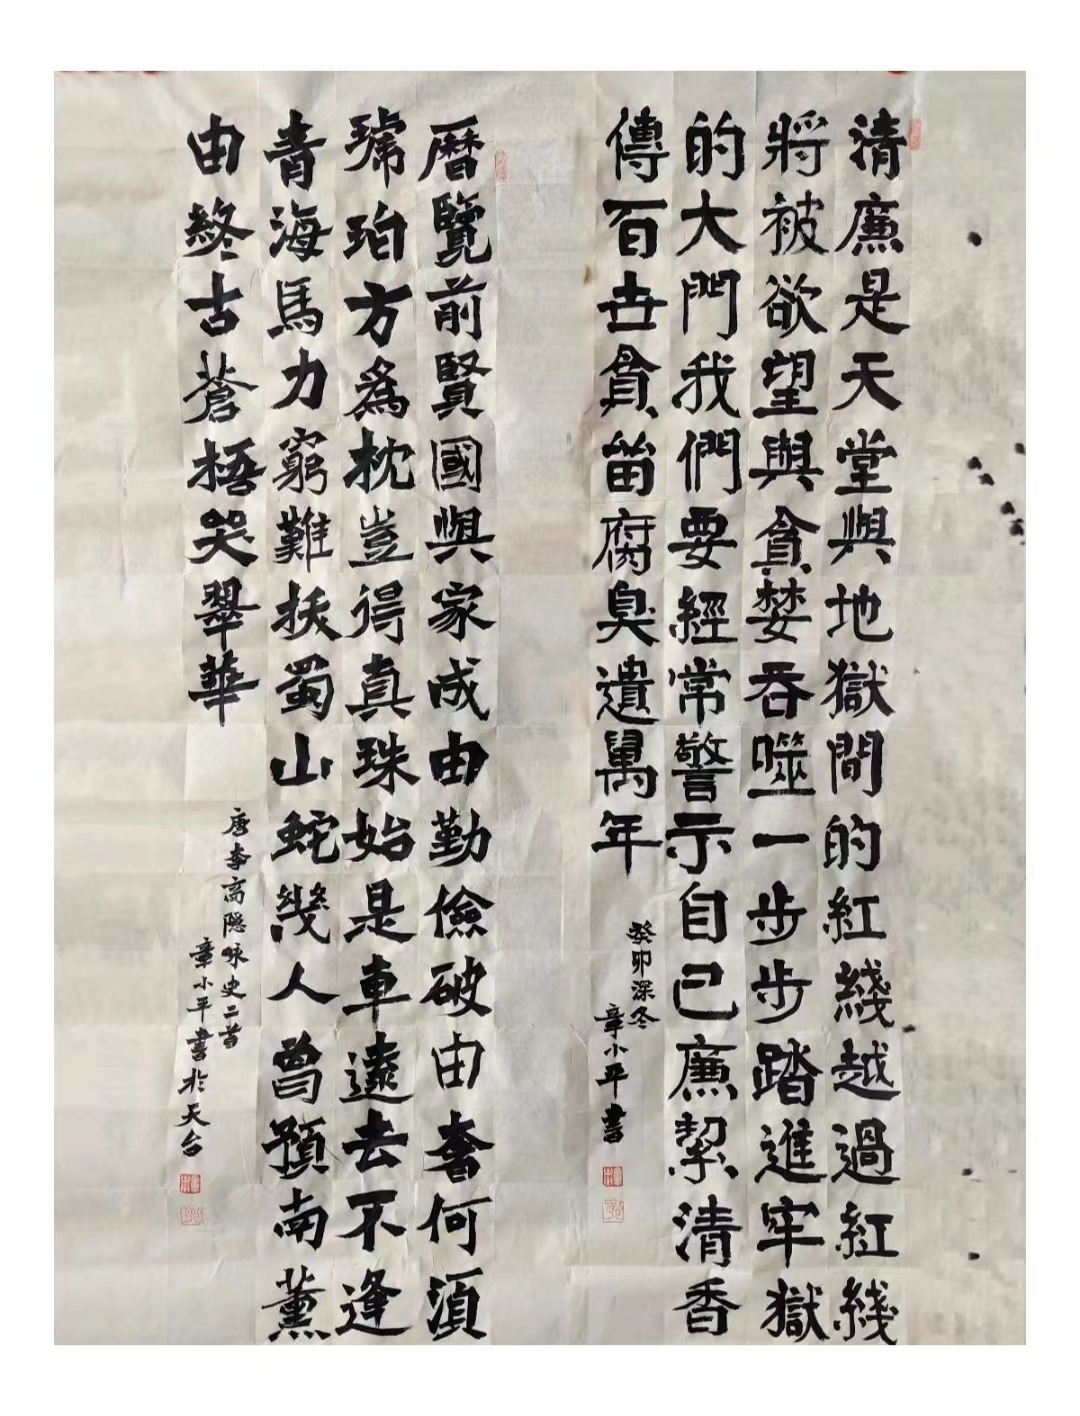 清廉是天堂與地獄間的紅綫越過紅綫
將被欲望與貪婪吞噬一步步踏進牢獄
的大門我們要經常警示自己廉絜清香
傳百世貪腐臭遺萬年
癸卯深冬
章小平書
曆覽前賢國與家成由勤儉破由奢何須
琥珀方為枕豈得真珠始是車遠去不逢
青海馬力窮難拔蜀山蛇幾人曾預南薰
由終古蒼梧哭翠華
唐李商隐咏史二首
章小平書於天台